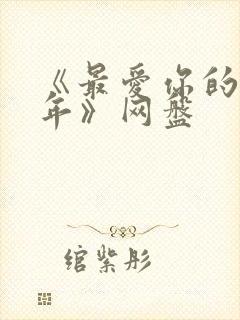 《最爱你的
年》网盘
绾紫彤